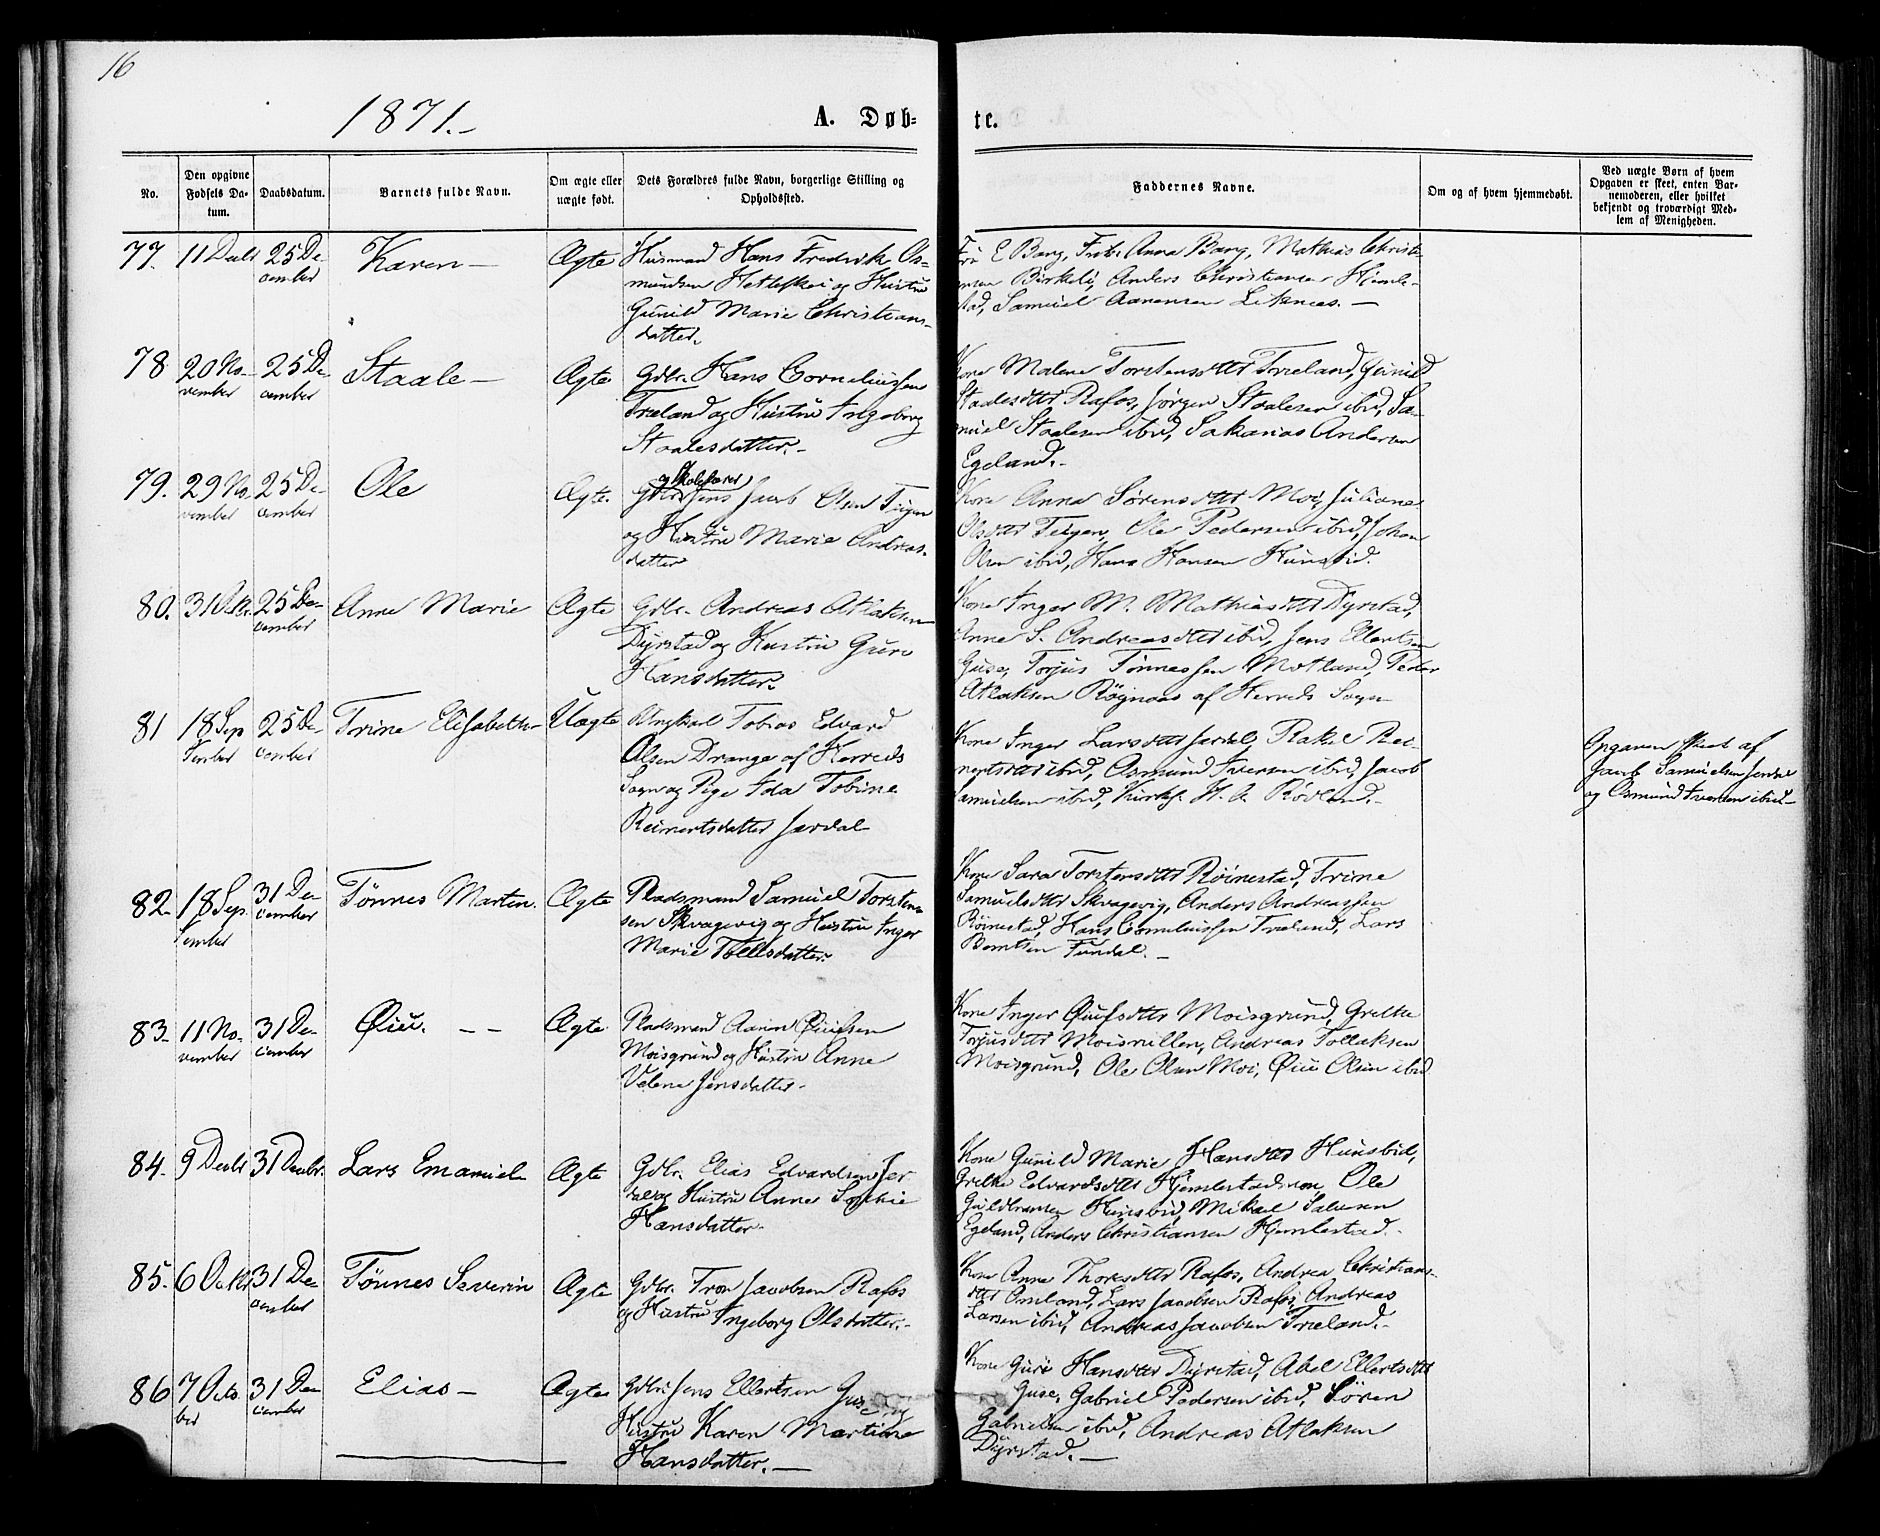 16
1871.-
A. Døb-
te.
No.
Den opgivne
Fødsels Da-
tum.
Daabsdatum.
Barnets fulde Navn.
Om ægte eller
uægte født.
Dets Forældres fulde Navn, borgerlige Stilling og
Opholdssted.
Faddernes Navne.
Om og af hvem hjemmedøbt.
Ved uægte Børn af hvem
Opgaven er skeet, enten Bar-
nemoderen, eller hvilket
bekjendt og troværdigt Med-
lem af Menigheden.
77. 11 Decbr 25 De-
cember
Karen -
Ægte
Husmand Hans Fredrik Os-
mundsen og Hustru
Gunild Marie Christians-
datter.
E Bang, Anna Bang, Mathias Christi-
ansen Birkeli, Anders Christiansen Hjemle-
stad, Samuel Aanensen Liknæs. -
78 20 No-
vember
25 De-
cember
Staale -
Ægte
Gdbr. Hans Corneliussen
Træland og Hustru Ingeborg
Staalesdatter. -
Kone Malene Torstensdttr Træland, Gunild
Staalesdttr Rafos, Jørgen Staalesen ibid, Sa-
muel Staalesen ibid, Sakarias Andersen
Egeland. -
79. 29 No-
vember
25 De-
cember
Ole
Ægte.
og Skolelærer
Gdbr Jens Jacob Olsen Teigen
og Hustru Marie Andreas-
datter
Kone Anna Sørensdttr Moi, Juliane
Olsdttr Teigen, Ole Pedersen ibid, Johan
Olsen ibid, Hans Hansen Hunsbid.
80. 31 Okt. 25 De-
cember
Anne Marie
Ægte
Gdbr. Andreas Atlaksen
Dyrstad og Hustru Guri
Hansdatter.
Kone Inger M. Mathiasdttr Dyrstad,
Anne S. Andreasdttr ibid, Jens Ellertsen
Guse, Torjus Tønnessen Motland, Peder
Atlaksen Røgnaas af Herreds Sogn
81 18 Sep-
tember
25 De-
cember
Trine Elisabeth -
Uægte
Ungkarl Tobias Edvard
Olsen Drange af Herreds
Sogn og Pige Ida Tobine
Reinertsdatter Jerdal
Kone Inger Larsdttr Jerdal, Rakel Rei-
nertsdttr ibid, Osmund Iversen ibid, Jacob
Samuelsen ibid, Kirks. H. A. Rødland. -
Opgaven skeet af
Jacob Samuelsen Jerdal
og Osmund Iversen ibid -
82. 18 Sep-
tember
31 De-
cember
Tønnes Martin.
Ægte
Pladsmand Samuel Torsten-
sen Skvagevig og Hustru Inger
Marie Tollisdatter.
Kone Sara Torstensdttr Røinestad, Trine
Samuelsdttr Skvagevig, Anders Andreassen
Røinestad, Hans Corneliussen Træland, Lars
Berntsen Fundal. -
83. 11 No-
vember
31 De-
cember
Øiu. - -
Ægte
Pladsmand Aanen Øiufsen
Moisgrund og Hustru Anne
Valene Jensdatter.
Kone Inger Øiufsdttr Moisgrund, Grethe
Torjusdttr Moismillen, Andreas Tollaksen
Moisgrund, Ole Olsen Moi, Øiu Olsen ibid.
84. 9 Decbr 31 Decbr.
Lars Emanuel
Ægte
Gdbr. Elias Edvardsen Jer-
dal og Hustru Anne Sophie
Hansdatter.
Kone Gunild Marie Hansdttr Hunsbid,
Grethe Edvardsdttr Hjemlestadmoen, Ole
Guldbransen Hunsbid, Mikael Salvesen
Egeland, Anders Christiansen Hjemlestad. -
85. 6 Octbr 31 De-
cember
Tønnes Severin
Ægte
Gdbr. Tron Jacobsen Rafos
og Hustru Ingeborg Olsdatter. -
Kone Anne Thoresdttr Rafos, Andrea Christians-
dttr Omland, Lars Jacobsen Rafos, Andreas
Larsen ibid, Andreas Jacobsen Træland. -
86 7 Octo-
ber
31 De-
cember
Elias -
Ægte
Gdbr Jens Ellertsen Guse og
Hustru Karen Martine
Hansdatter. -
Kone Guri Hansdttr Dyrstad, Abel Ellertsdttr
Guse, Gabriel Pedersen ibid, Søren
Gabrielsen ibid, Andreas Atlaksen
Dyrstad. -